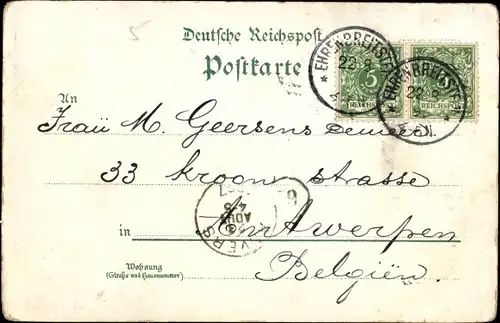 5
Deutsche Reichspost
Postkarte
* EHRENBREITSTEIN
22 8
5
* EHRENBREITSTEIN
22 8
REICHSPOST
An
Frau M. Geersens
33 kroon strasse
in Antwerpen
Belgiën.
ANVERS
AOUT
6
Wohnung
(Straße und Hausnummer)